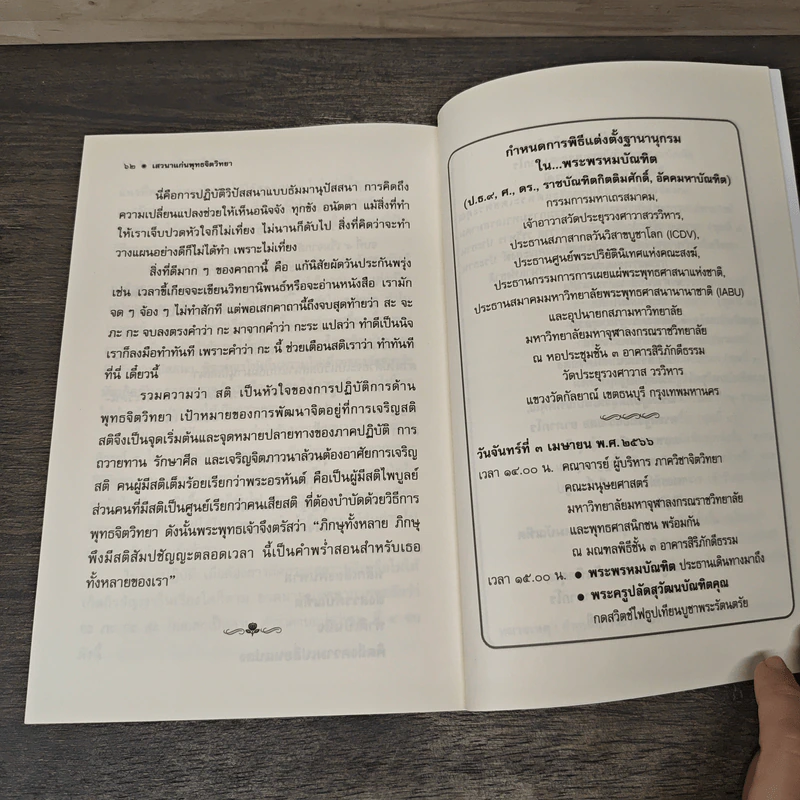 ๖๒ ● เสวนาแก่นพุทธจิตวิทยา
นี่คือการปฏิบัติวิปัสสนาแบบธัมมานุปัสสนา การคิดถึง
ความเปลี่ยนแปลงช่วยให้เห็นอนิจจัง ทุกขัง อนัตตา แม้สิ่งที่ทำ
ให้เราเจ็บปวดหัวใจก็ไม่เที่ยง ไม่นานก็ดับไป สิ่งที่คิดว่าจะทำ
วางแผนอย่างดีก็ไม่ได้ทำ เพราะไม่เที่ยง
สิ่งที่ดีมาก ๆ ของคาถานี้ คือ แก้นิสัยผัดวันประกันพรุ่ง
เช่น เวลาขี้เกียจจะเขียนวิทยานิพนธ์หรือจะอ่านหนังสือ เรามัก
จด ๆ จ้อง ๆ ไม่ทำสักที แต่พอเสกคาถานี้ถึงจบสุดท้ายว่า สะ จะ
ภะ กะ จบลงตรงคำว่า กะ มาจากคำว่า กะระ แปลว่า ทำดีเป็นนิจ
เราก็ลงมือทำทันที เพราะคำว่า กะ นี้ ช่วยเตือนสติเราว่า ทำทันที
ที่นี่ เดี๋ยวนี้
รวมความว่า สติ เป็นหัวใจของการปฏิบัติการด้าน
พุทธจิตวิทยา เป้าหมายของการพัฒนาจิตอยู่ที่การเจริญสติ
สติจึงเป็นจุดเริ่มต้นและจุดหมายปลายทางของภาคปฏิบัติ การ
ถวายทาน รักษาศีล และเจริญจิตภาวนาล้วนต้องอาศัยการเจริญ
สติ คนผู้มีสติเต็มร้อยเรียกว่าพระอรหันต์ คือเป็นผู้มีสติไพบูลย์
ส่วนคนที่มีสติเป็นศูนย์เรียกว่าคนเสียสติ ที่ต้องบำบัดด้วยวิธีการ
พุทธจิตวิทยา ดังนั้นพระพุทธเจ้าจึงตรัสว่า “ภิกษุทั้งหลาย ภิกษุ
พึงมีสติสัมปชัญญะตลอดเวลา นี้เป็นคำพร่ำสอนสำหรับเธอ
ทั้งหลายของเรา”
กำหนดการพิธีแต่งตั้งฐานานุกรม
ใน...พระพรหมบัณฑิต
(ป.ธ.๙, ศ., ดร., ราชบัณฑิตกิตติมศักดิ์, อัคคมหาบัณฑิต)
กรรมการมหาเถรสมาคม,
เจ้าอาวาสวัดประยุรวงศาวาสวรวิหาร,
ประธานสภาสากลวันวิสาขบูชาโลก (ICDV),
ประธานศูนย์พระปริยัตินิเทศแห่งคณะสงฆ์,
ประธานกรรมการการเผยแผ่พระพุทธศาสนาแห่งชาติ,
ประธานสมาคมมหาวิทยาลัยพระพุทธศาสนานานาชาติ (IABU)
และอุปนายกสภามหาวิทยาลัย
มหาวิทยาลัยมหาจุฬาลงกรณราชวิทยาลัย
ณ หอประชุมชั้น ๓ อาคารสิริภักดีธรรม
วัดประยุรวงศาวาส วรวิหาร
แขวงวัดกัลยาณ์ เขตธนบุรี กรุงเทพมหานคร
วันจันทร์ที่ ๓ เมษายน พ.ศ.๒๕๖๖
เวลา ๑๔.๐๐ น. คณาจารย์ ผู้บริหาร ภาควิชาจิตวิทยา
คณะมนุษยศาสตร์
มหาวิทยาลัยมหาจุฬาลงกรณราชวิทยาลัย
และพุทธศาสนิกชน พร้อมกัน
ณ มณฑลพิธีชั้น ๓ อาคารสิริภักดีธรรม
เวลา ๑๕.๐๐ น. ● พระพรหมบัณฑิต ประธานเดินทางมาถึง
● พระครูปลัดสุวัฒนบัณฑิตคุณ
กดสวิตช์ไฟธูปเทียนบูชาพระรัตนตรัย